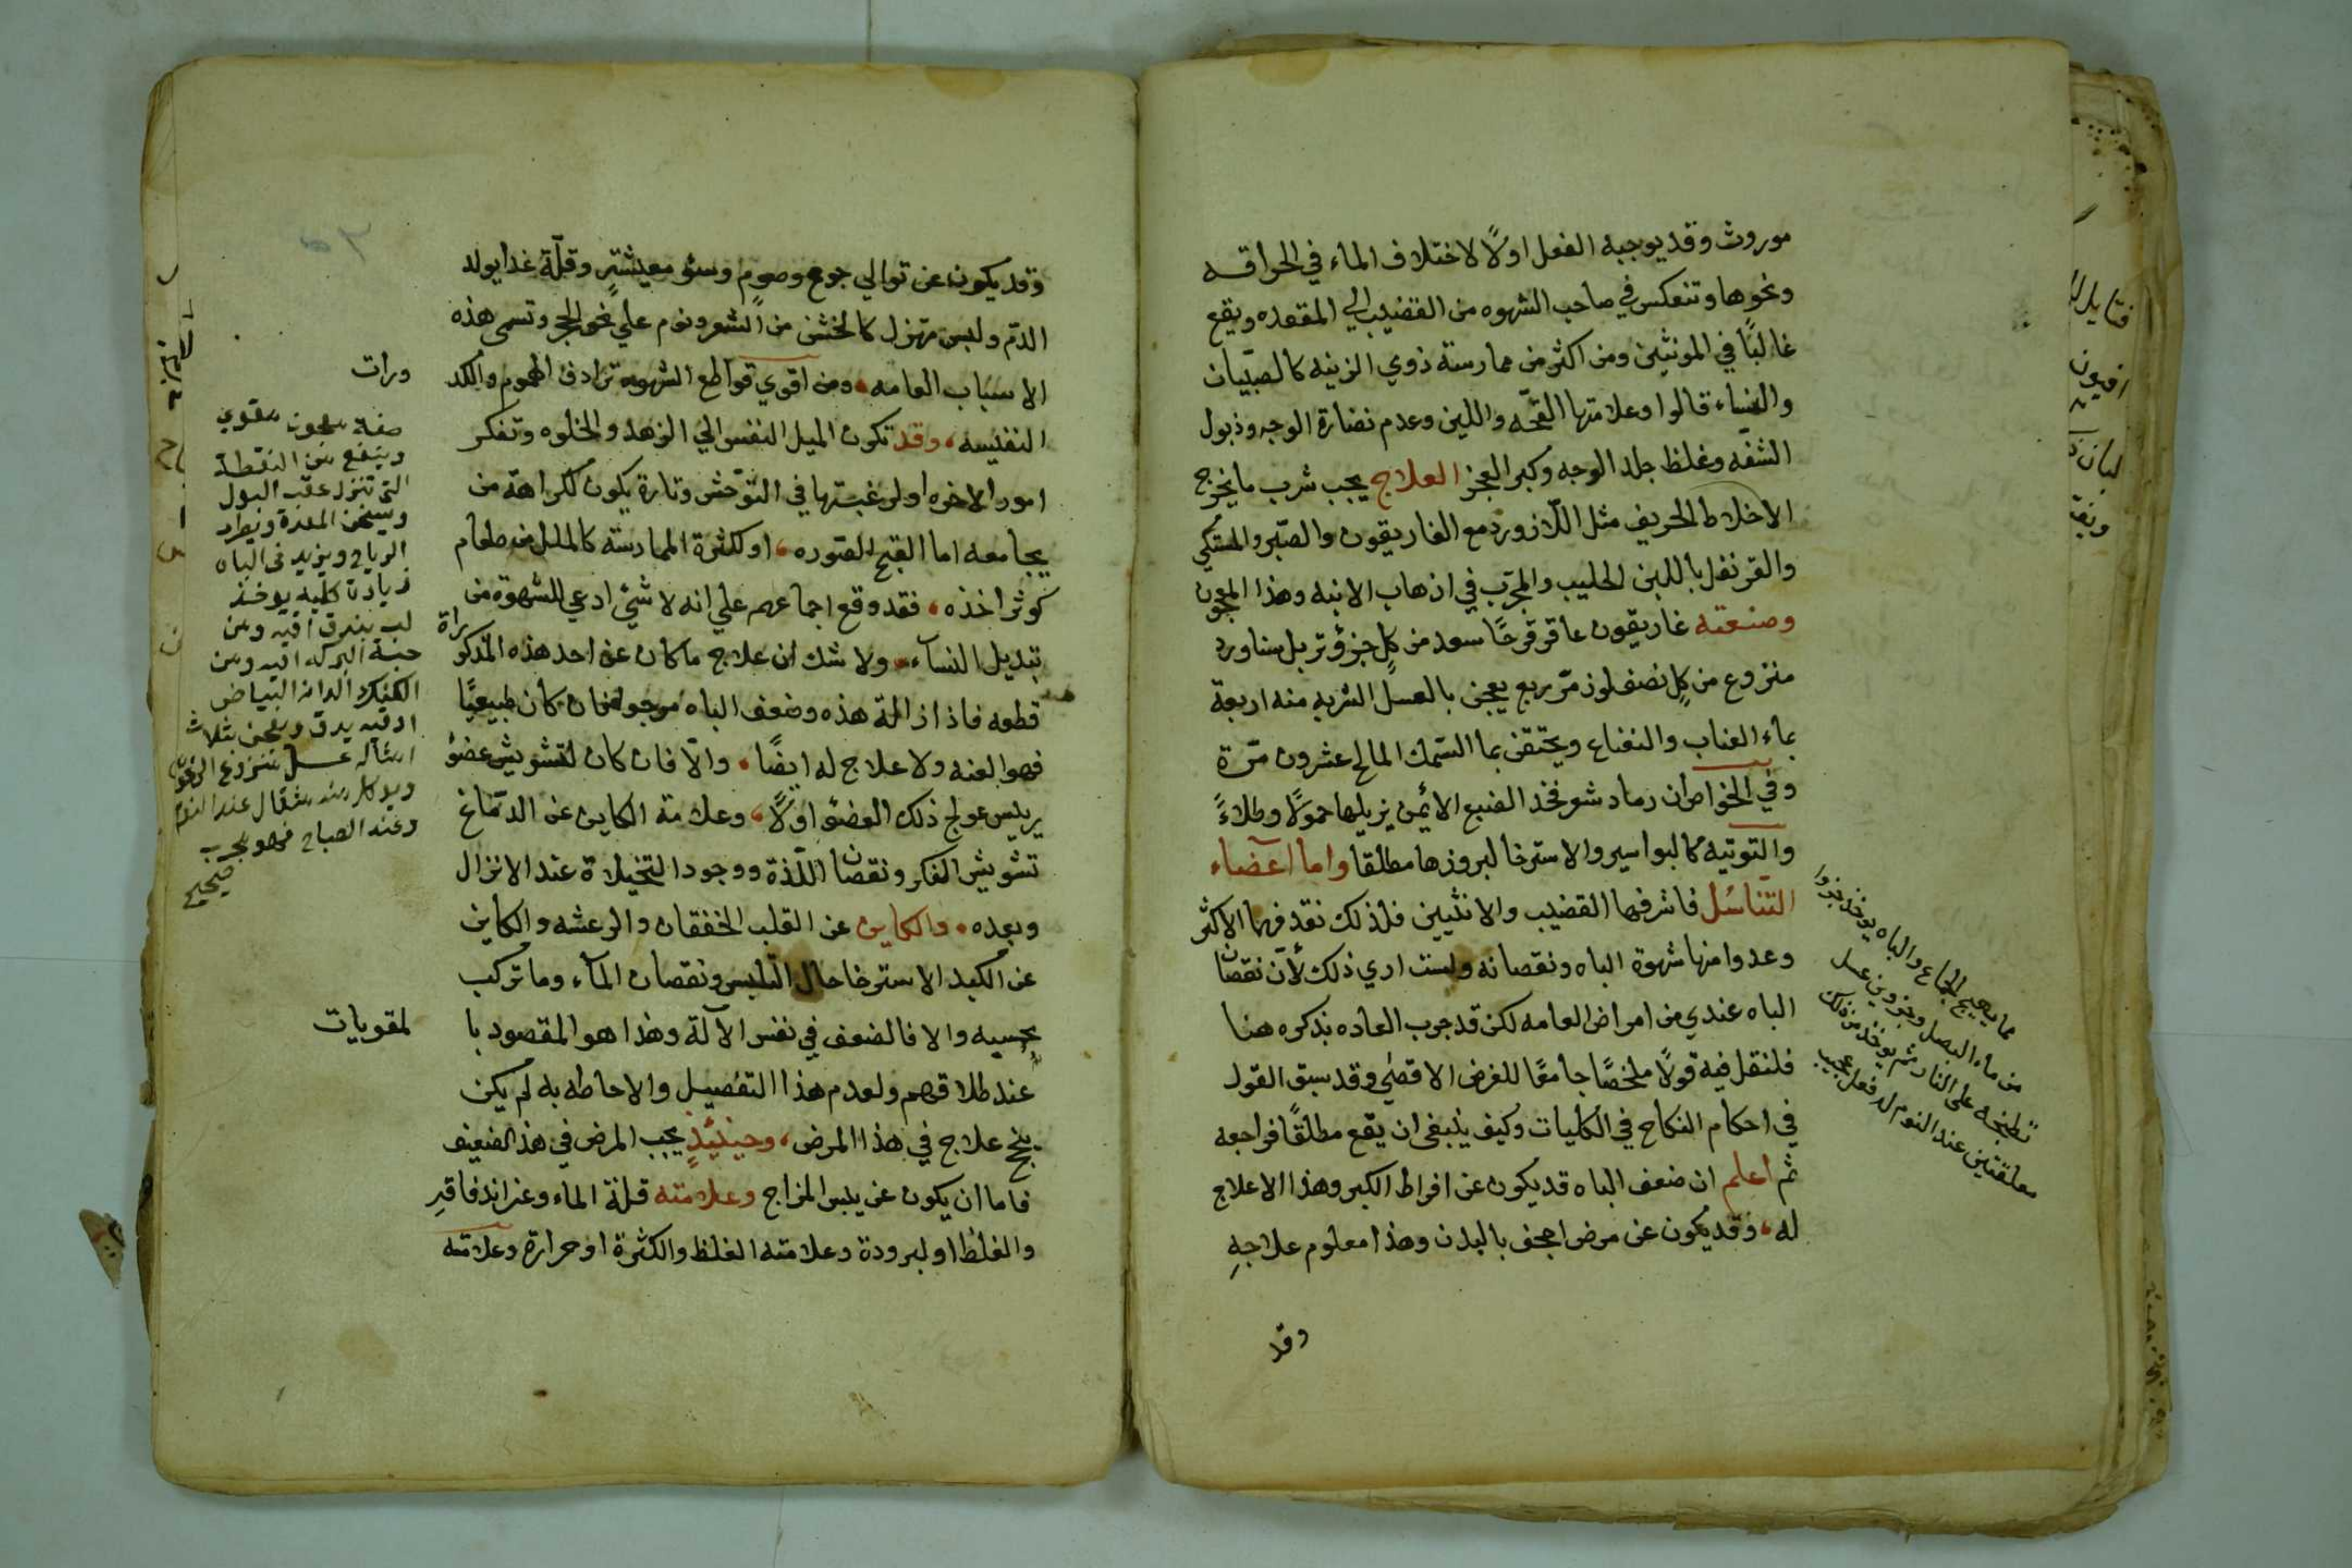 موروث وقد يوجبه الفعل اولًا لاختلاف الماء في الحراقه
ونحوها وتنعكس في صاحب الشهوه من القضيب الي المقعده ويقع
غالبًا في المونثين ومن اكثر من ممارسته ذوي الزينه كالصبيان
والنساء قالوا وعلامتها القحه واللين وعدم نضارة الوجه وذبول
الشفه وغلظ جلد الوجه وكبر العجز العلاج يجب شرب ما يخرج
الاخلاط الحريف مثل اللازورد مع الغاريقون والصبر والمستكي
والقرنفل باللبن الحليب والمجرب في اذهاب الابنه وهذا المعجون
وصنعته غاريقون عاقرقرحًا سعد من كل جزؤ تربل سناورد
منزوع من كل نصف لوز مر ربع يعجن بالعسل الشربه منه اربعة
بماء العناب والنعناع ويحتقن بما السمك المالح عشرون مرة
وفي الخواص ان رماد شعر فخد الضبع الايمن يزيلها حمولًا وطلاءً
والتوتيه كالبواسير والاسترخا لبروزها مطلقا واما آعضاء
التناسُل فاشرفها القضيب والانثيين فلذلك نقد فيها الاكثر
وعدوا منها شهوة الباه ونقصانه ولست اري ذلك لأن نقصان
الباه عندي من امراض العامه لكن قد جرب العاده بذكره هنا
فلنقل فيه قولًا ملخصًا جامعًا للغرض الاقصي وقد سبق القول
في احكام النكاح في الكليات وكيف ينبغي ان يقع مطلقًا فراجعه
ثم اعلم ان ضعف الباه قد يكون عن افراط الكبر وهذا الاعلاج
له، وقد يكون عن مرض اجحف بالبدن وهذا معلوم علاجهِ
وقد
مما يهيج الجماع والباه يوخذ جزوا
من ماء البصل وجزوين عسل
تطبخه على النار ثم يوخذ من ذلك
معلقتين عند النوم له فعل عجيب
وقد يكون عن توالي جوع وصوم وسؤ معيشتٍ وقلّة غدا يولد
الدم ولبس مهزل كالخشن من الشعر ونوم علي نحو الحجر وتسمى هذه
الاسباب العامه، ومن اقوي قواطع الشهوه ترادف الهموم والكد
النفيسه، وقد تكون الميل النفس الي الزهد والخلوه وتفكر
امور الاخره اولرغبتها في التوّحش وتارة يكون لكراهة من
يجامعه اما القبح الصوره، او لكثرة الممارسته كالملل من طعام
كوثر اخذه، فقد وقع اجماعهم علي انه لا شئ ادعي للشهوة من
تبديل النسآء، ولا شك ان علاج ما كان عن احد هذه المذكوراة
قطعه فاذا زالة هذه وضعف الباه موجود فان كان طبيعيًا
فهو العنه ولا علاج له ايضًا، والّا فان كان لتشويش عضؤ
يرييس عولج ذلك العضؤ اولًا، وعلامة الكاين عن الدماغ
تشويش الفكر ونقصان اللّذة ووجود التخيلاة عند الانزال
وبعده، والكاين عن القلب الخفقان والرعشه والكاين
عن الكبد الاسترخا حال التلبس ونقصان المآء وما تركب
بحسبه والا فالضعف في نفس الآلة وهذا هو المقصود با لمقويات
عند طلاقهم ولعدم هذا التفصيل والاحاطه به لم يكن
ينجح علاج في هذا المرض، وحينئذٍ يجب المرض في هذ الضعيف
فاما ان يكون عن يبس المزاج وعلامته قلة الماء
والغلظ او لبرودة وعلامته الغلظ والكثرة او حرارة وعلامته
ورات
صفة معجون مقوي
وينفع من النقطة
التي تنزل عقب البول
ويسخن المعدة ويطرد
الرياح ويزيد في الباه
زيادة كليه يوخذ
لب بندق اقيه ومن
حبة البركه اقيه ومن
ادقيه يدق ويعجن بثلاث
امثاله عسل منزوع الرغوة
وياكل منه مثقال عند النوم
وعند الصباح فهو مجرب
صحيح
فتايل
افيون
لبان